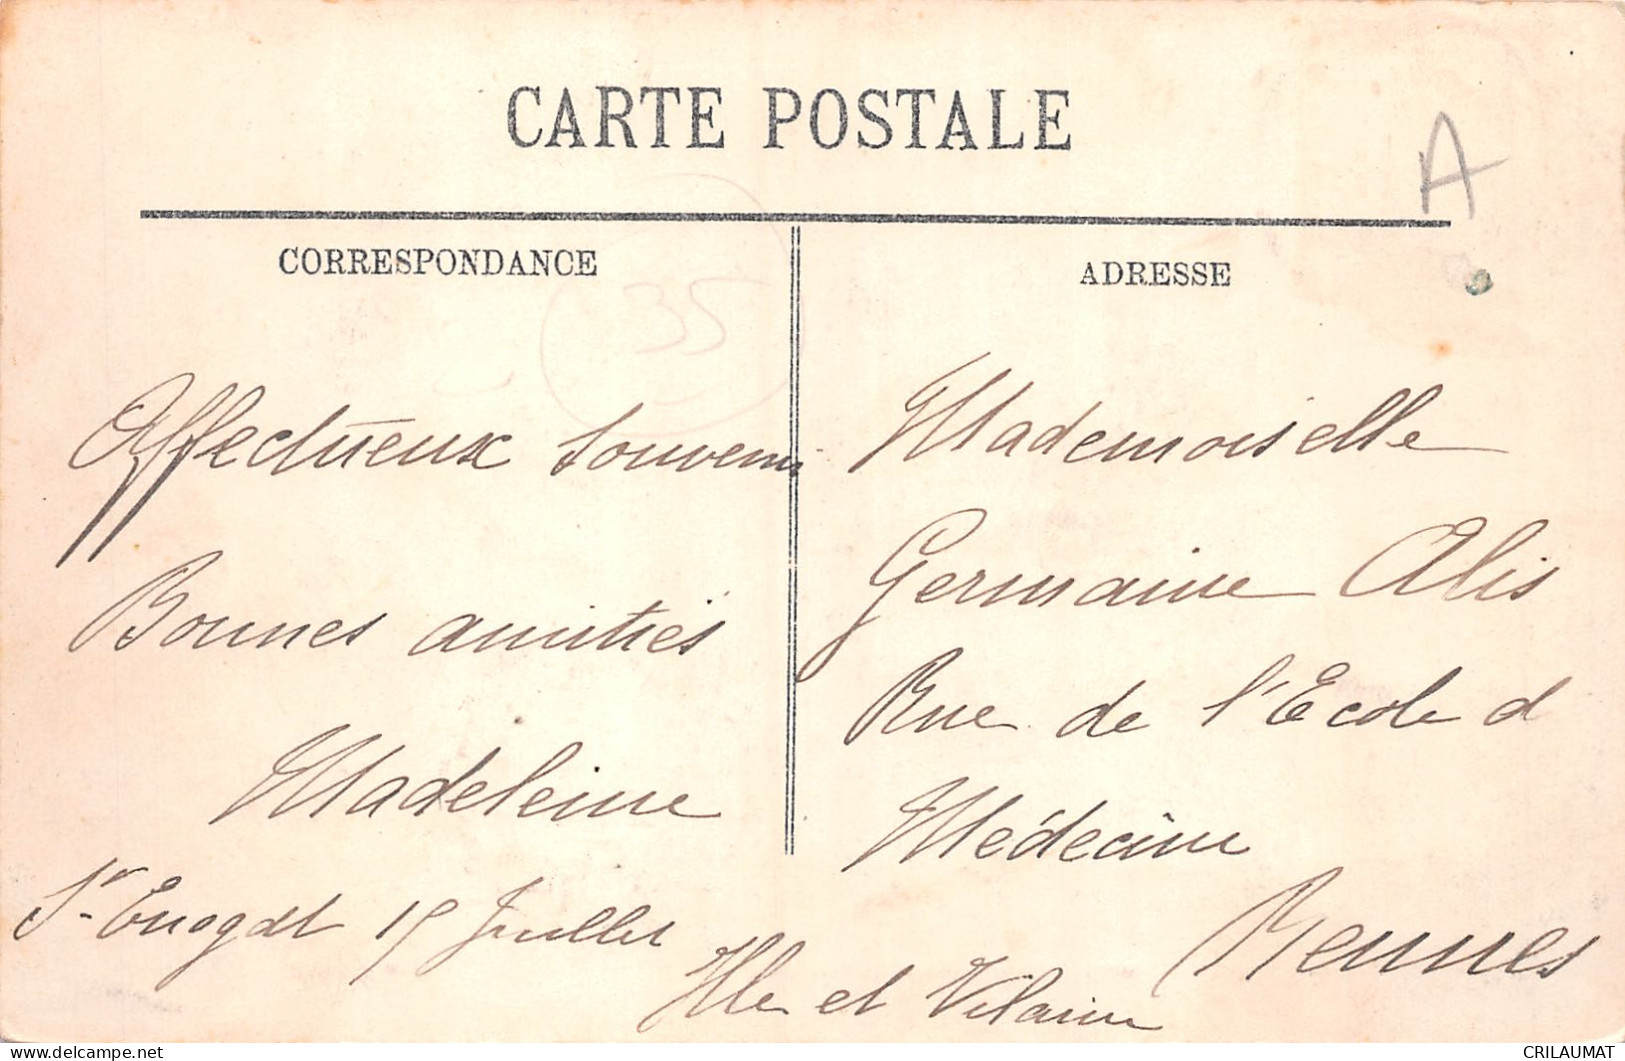 CARTE POSTALE
A
CORRESPONDANCE
35
ADRESSE
Affectueux souvenir
Bonnes amitiés
Madeleine
St Enogat 15 Juillet
Mademoiselle
Germaine Alis
Rue de l'Ecole d
Médecine
Rennes
Ille et Vilaine
delcampe.net
CRILAUMAT